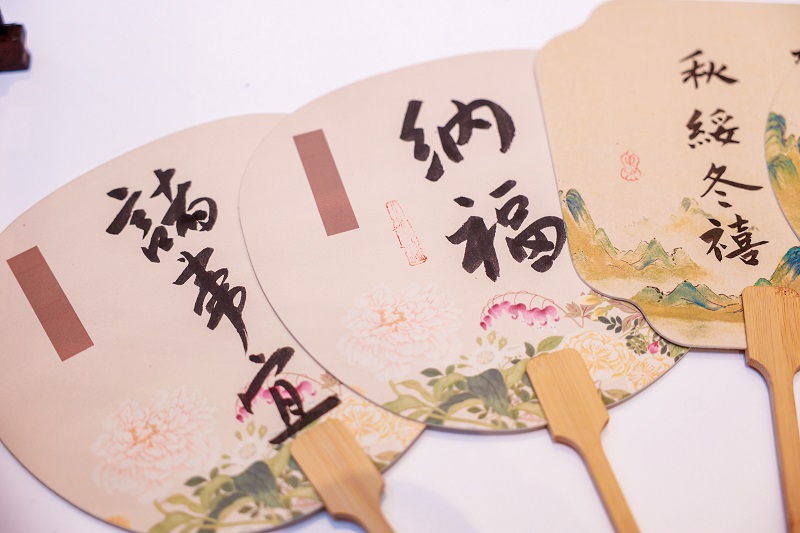 諸事宜
納福
秋綏冬禧